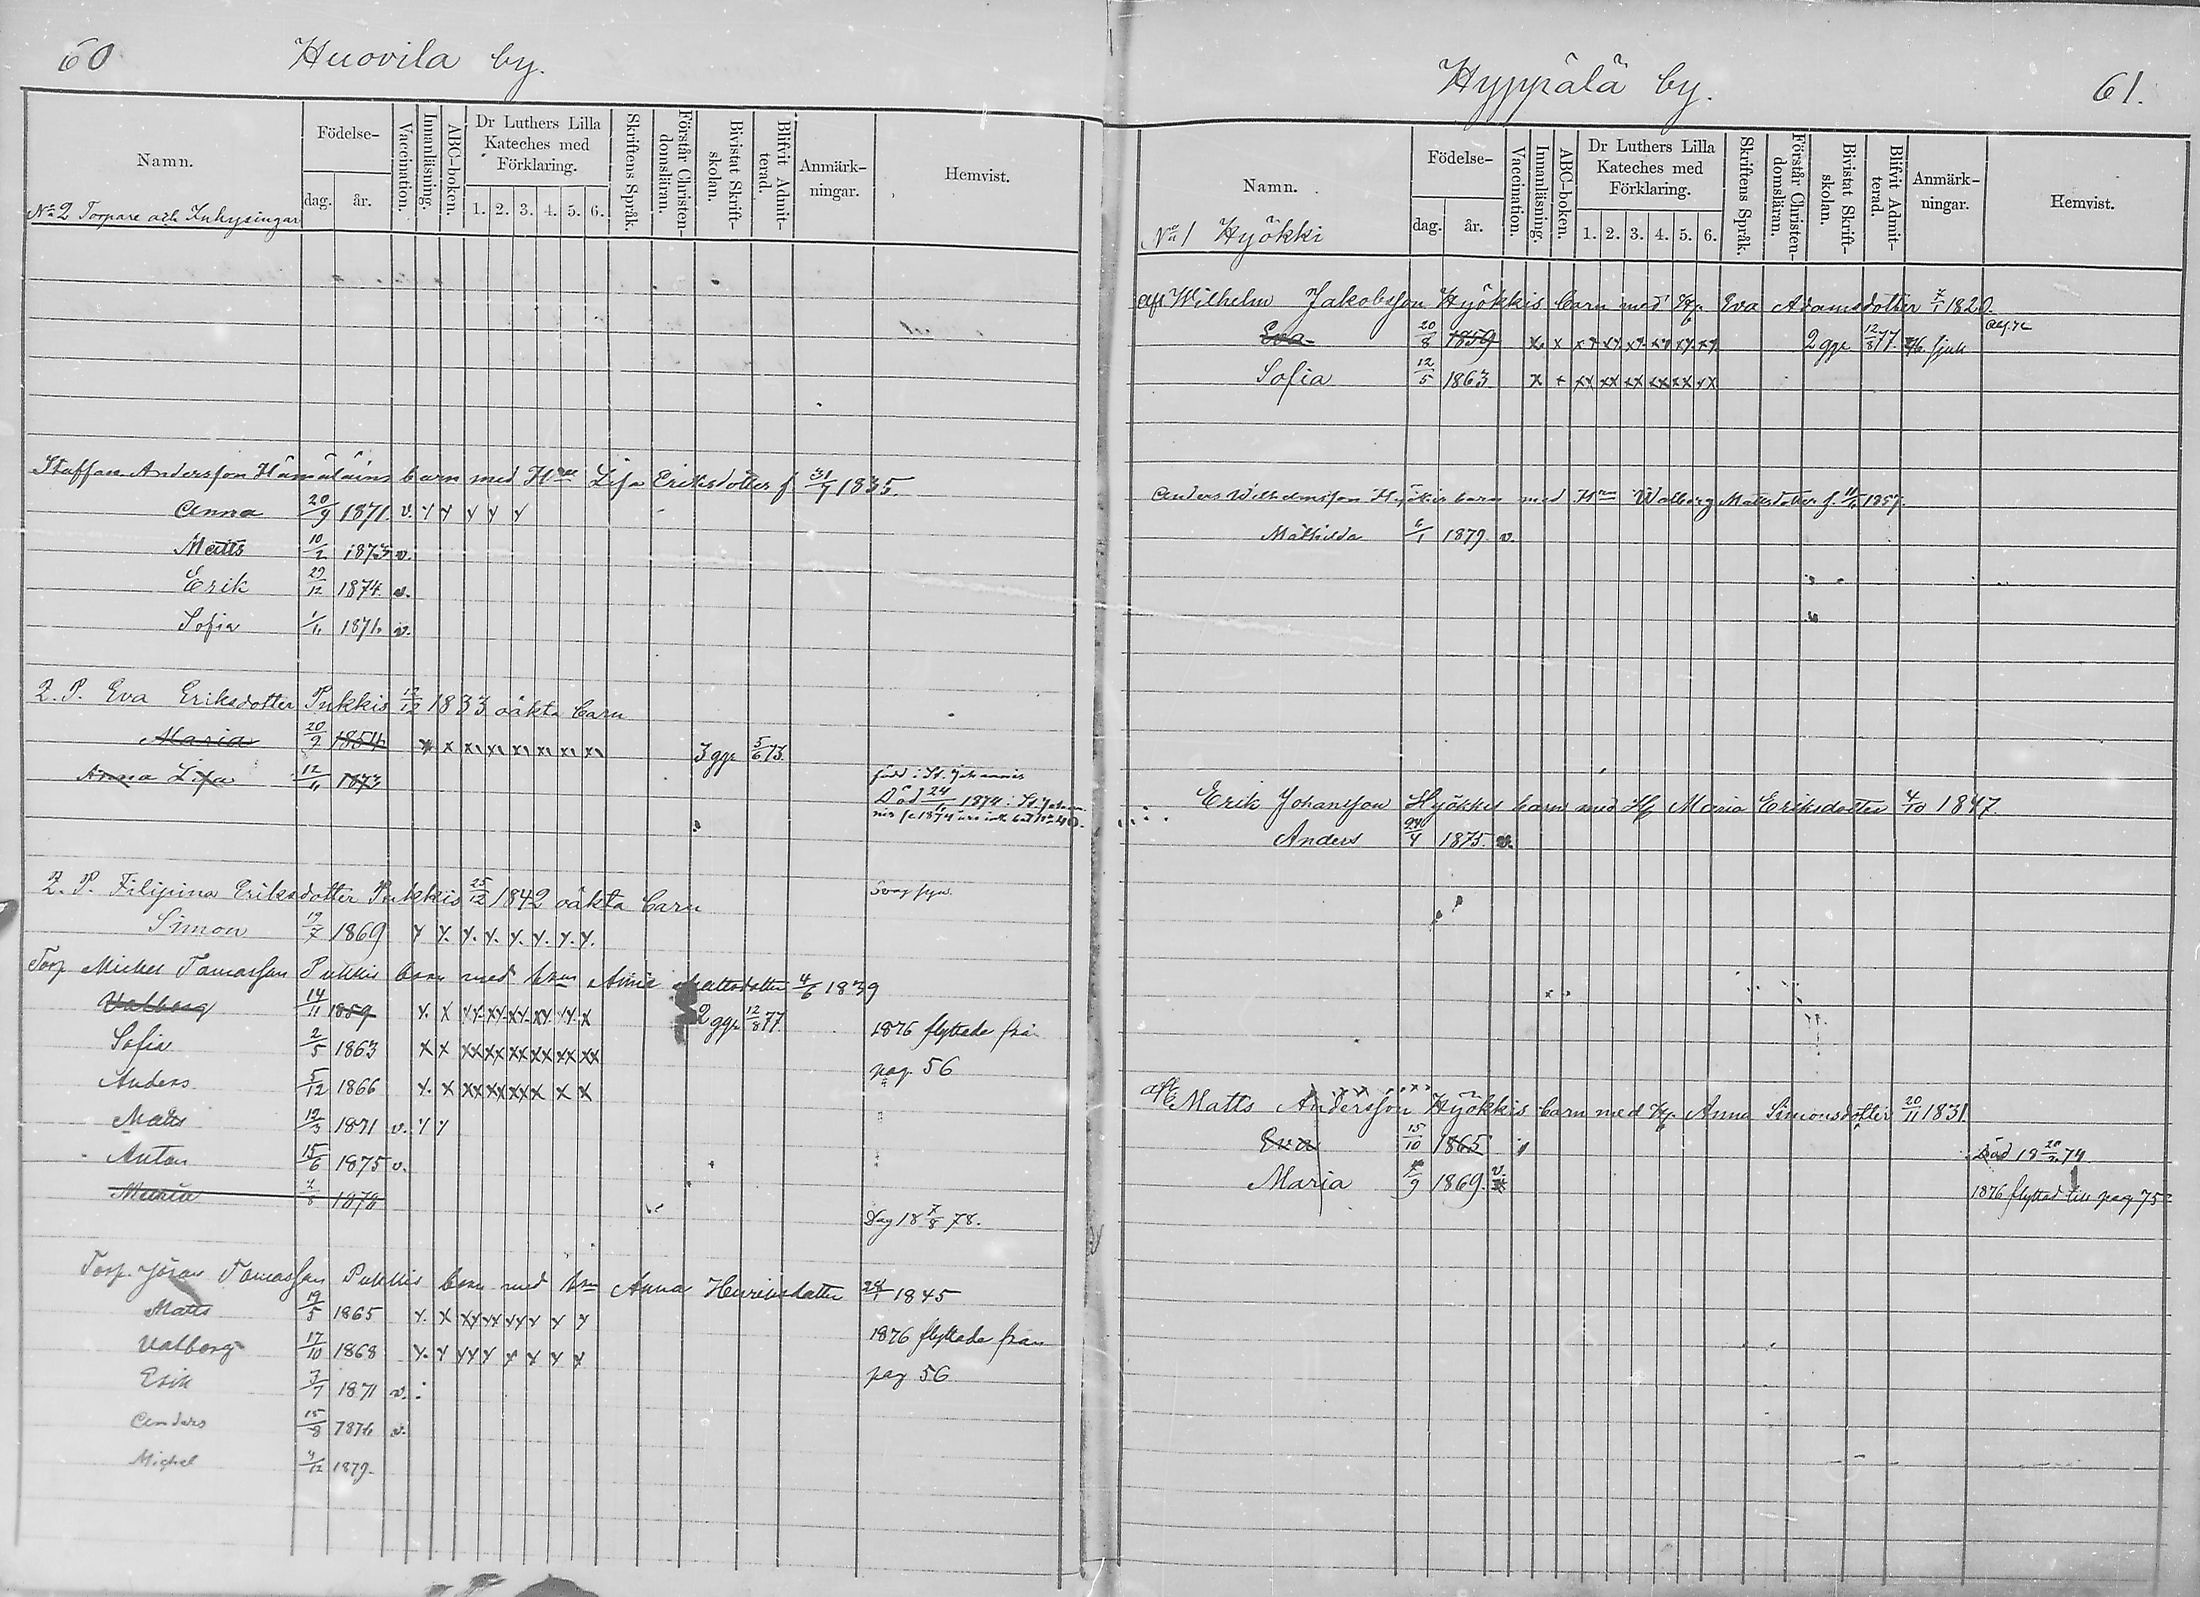 60 Huovila by.
Namn. Födelse- dag. år. Vaccination. Innanläsning. ABC-boken. Dr Luthers Lilla Kateches med Förklaring. 1. 2. 3. 4. 5. 6. Skriftens Språk. Förstår Christen-domsläran. Bivistat Skrift-skolan. Blifvit Admit-terad. Anmärk-ningar. Hemvist.
No 2 Torpare och Inhysingar
Staffan Andersson Hämäläins barn med Hun Lisa Eriksdotter f 31/7 1835.
Anna 20/9 1871. v. x x x x x
Matts 10/2 1873 v.
Erik 29/12 1874 v.
Sofia 1876 v.
Z. P. Eva Eriksdotter Pukkis 12/12 1833 oäkta barn
Maria 20/9 1854 x x x x x x x x 3 ggr 5/6 73.
Anna Lisa 12/11 1873 född i St. Johannis
Död 24/11 1874 i St. Johan-
Z. P. Filipina Eriksdotter Pukkis 25/12 1842 oäkta barn Svag syn
Simon 19/7 1869 x x. x. x. x. x. x. x.
Torp. Michel Tomasson Pukkis barn med hun Anna Mattsdotter 4/6 1839
Valborg 14/11 1859 x. x xx xx xx xx xx x 2 ggr 12/8 77 1876 flyttade från
Sofia 2/5 1863 x x xx xx xx xx xx xx pag. 56
Anders 5/12 1866 x. x xx xx xx x x x
Matts 12/3 1871 v. x x
Anton 15/6 1875 v.
Maria 2/8 1878 Dog 18 7/8 78.
Torp. Jöran Tomasson Pukkis barn med hun Anna Henriksdotter 28/1 1845
Matts 19/5 1865 x. x xx xx xx x x x 1876 flyttade från
Valborg 17/10 1868 x. x xx x x x x x pag 56
Erik 3/7 1871 v.
Anders 15/8 1876 v.
Michel 4/12 1879.
Hyppälä by. 61.
Namn. Födelse- dag. år. Vaccination. Innanläsning. ABC-boken. Dr Luthers Lilla Kateches med Förklaring. 1. 2. 3. 4. 5. 6. Skriftens Språk. Förstår Christen-domsläran. Bivistat Skrift-skolan. Blifvit Admit-terad. Anmärk-ningar. Hemvist.
No 1 Hyökki
Afl Wilhelm Jakobsson Hyökkis barn med Hu. Eva Adamsdotter 7/1 1820.
Eva 20/8 1859 x x xx xx xx xx xx xx 2 ggr 12/8 77. sjuk
Sofia 12/5 1863 x x xx xx xx xx xx xx
Anders Wilhelmsson Hyökkis barn med Hun Walborg Mattsdotter f. 1857.
Mathilda 6/1 1879 v.
Erik Johansson Hyökkis barn med Hu Maria Eriksdotter 4/10 1847.
Anders 24/4 1875. v.
afl Matts Andersson Hyökkis barn med Hu. Anna Simonsdotter 20/11 1831.
Eva 15/10 1865 Död 18 74
Maria 9 1869. v. 1876 flyttad till pag 75